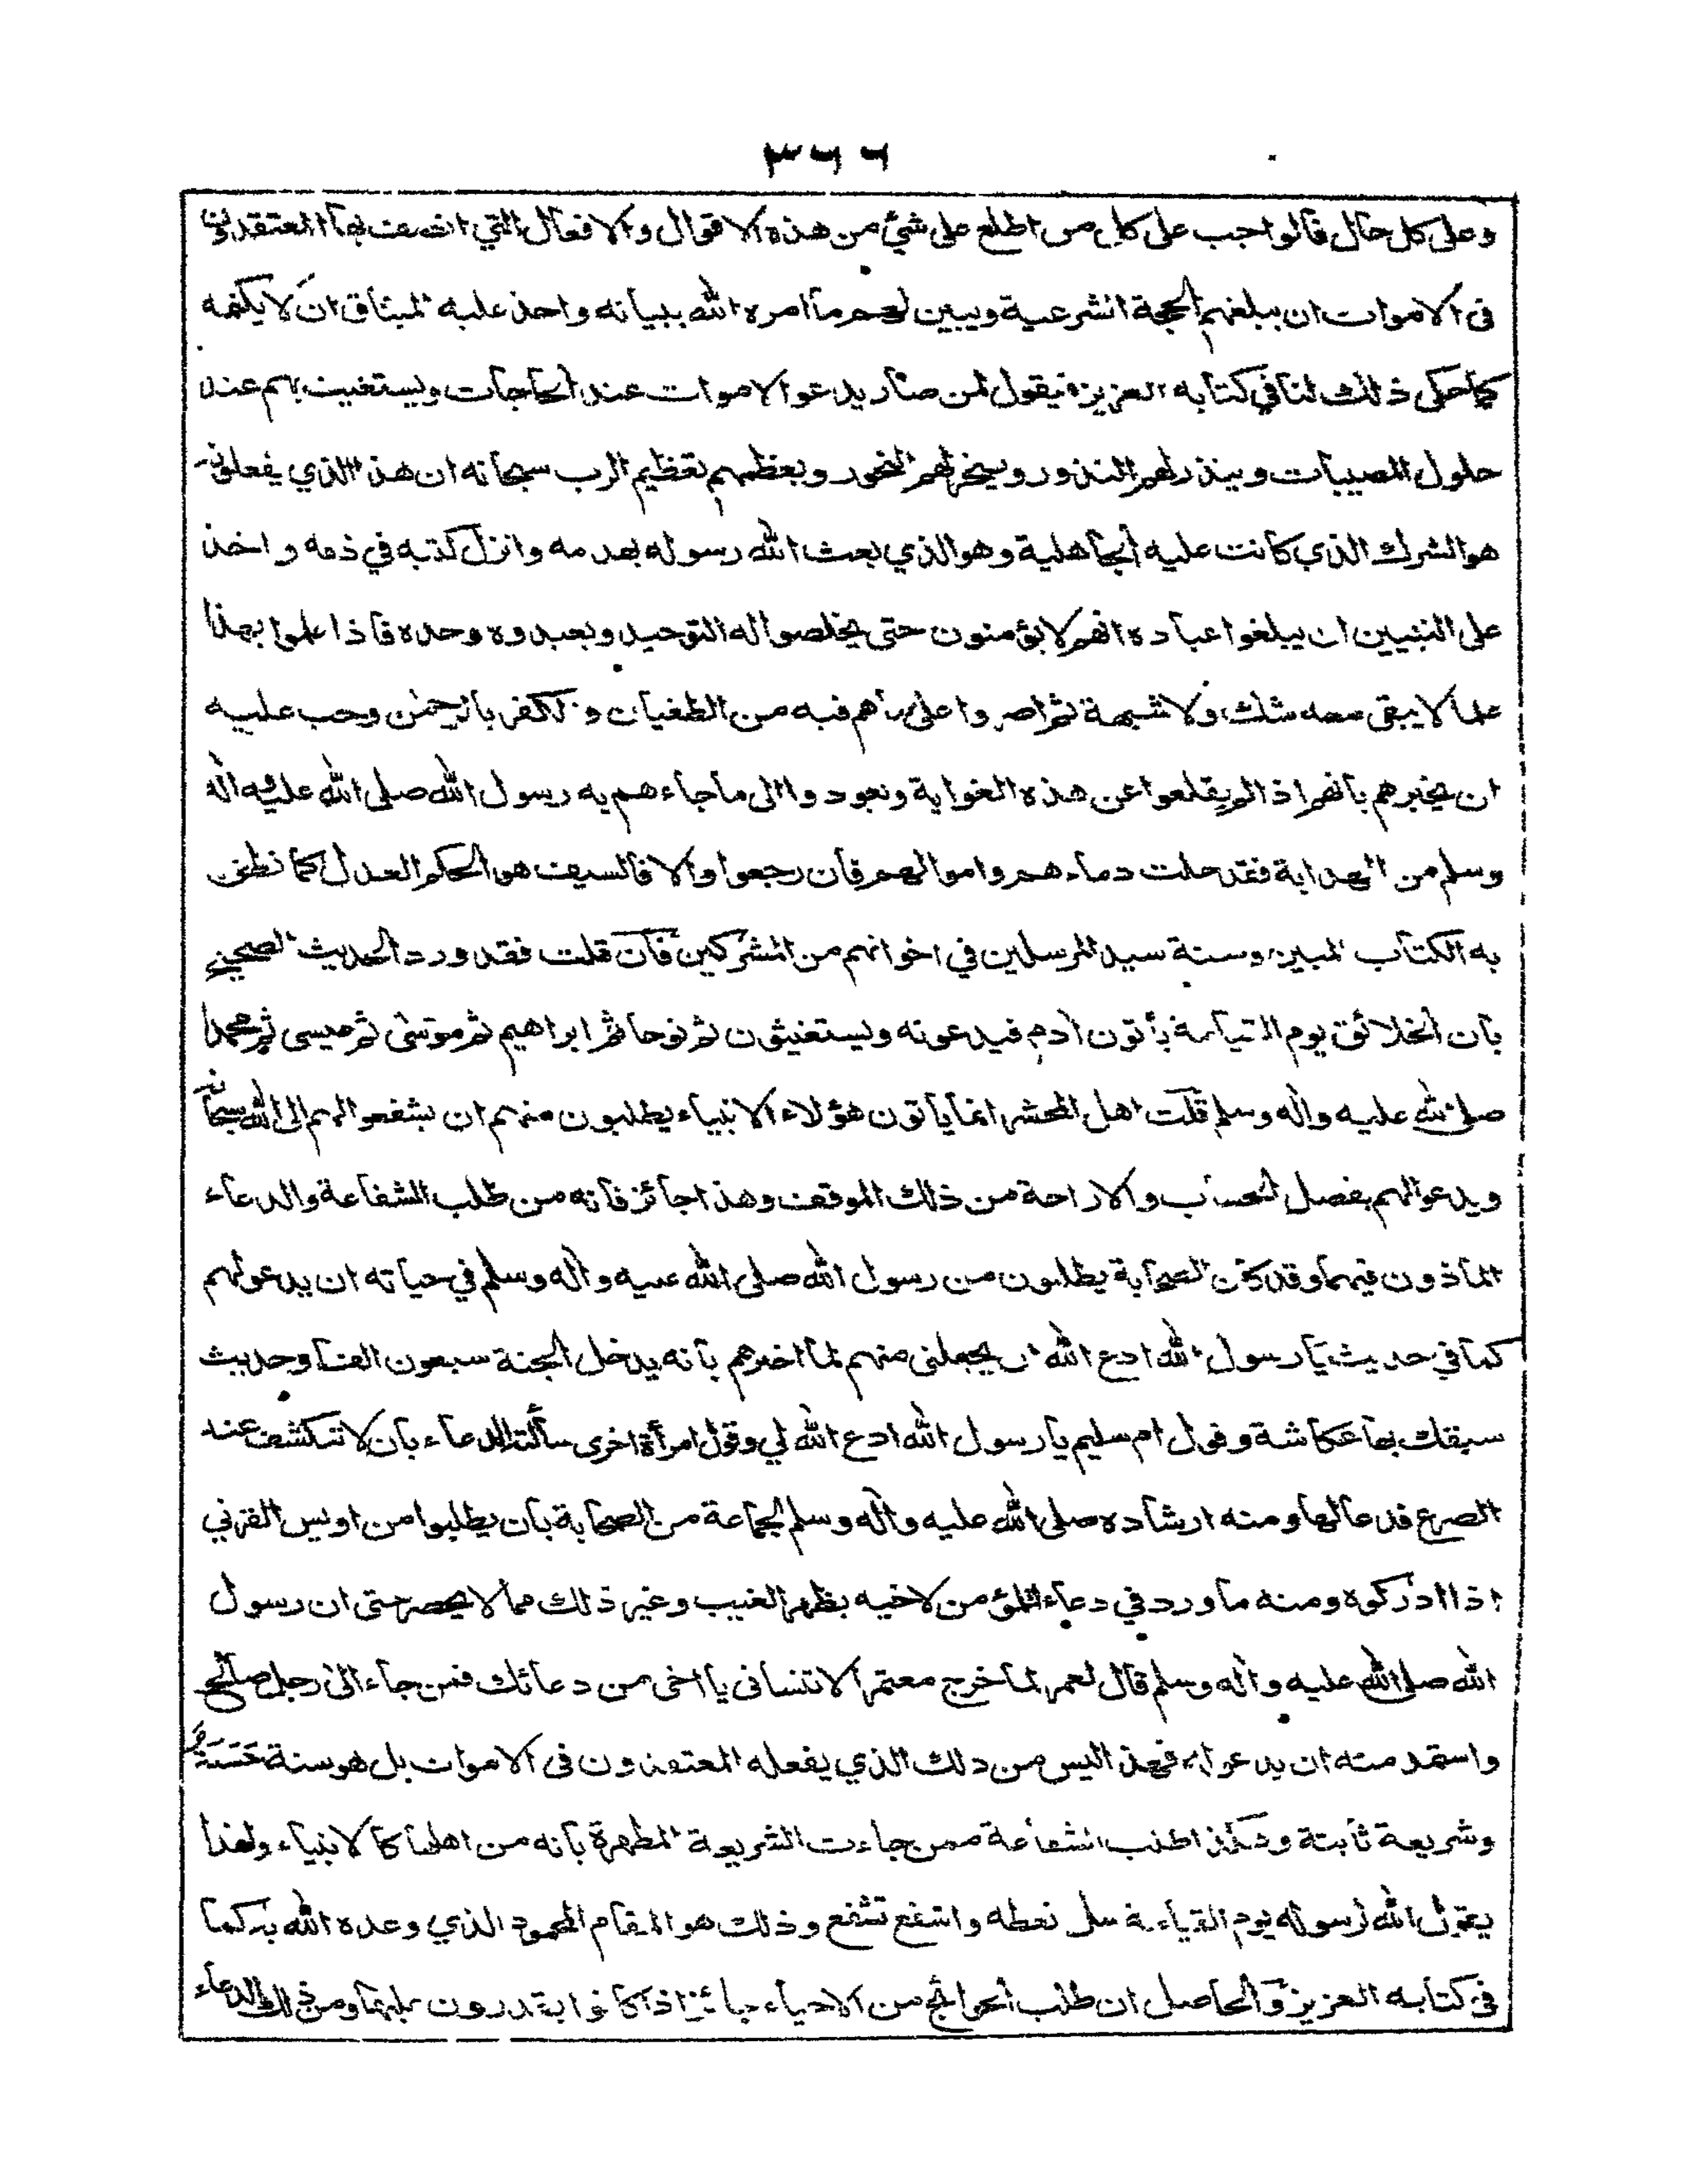 ٣٦٦
وعلى كل حال فالواجب على كل من اطلع على شئ من هذه الاقوال والافعال التي اتصف بها المعتقدون
فى الاموات ان يبلغهم الحجة الشرعية ويبين لهم ما امره الله ببيانه واخذ عليه الميثاق ان لا يكتمه
كما حكى ذلك لنا في كتابه العزيز فيقول لمن صار يدعو الاموات عند الحاجات ويستغيث بهم عند
حلول المصيبات وينذر لهم النذور وينحر لهم النحور ويعظمهم تعظيم الرب سبحانه ان هذا الذي يفعلونه
هو الشرك الذي كانت عليه الجاهلية وهو الذي بعث الله رسوله بهدمه وانزل كتبه في ذمه واخذ
على النبيين ان يبلغوا عباده انهم لا يؤمنون حتى يخلصوا له التوحيد ويعبدوه وحده فاذا علموا بهذا
علما لا يبقى معه شك ولا شبهة ثم اصروا على ما هم فيه من الطغيان والكفر بالرحمن وجب عليه
ان يخبرهم بانهم اذا لم يقلعوا عن هذه الغواية ويعودوا الى ما جاءهم به رسول الله صلى الله عليه واله
وسلم من الهداية فقد حلت دماءهم واموالهم فان رجعوا والا فالسيف هو الحكم العدل كما نطق
به الكتاب المبين وسنة سيد المرسلين في اخوانهم من المشركين فان قلت فقد ورد الحديث الصحيح
بان الخلائق يوم القيامة يأتون ادم فيدعونه ويستغيثون ثم نوحا ثم ابراهيم ثم موسى ثم عيسى ثم محمدا
صلى الله عليه واله وسلم قلت اهل المحشر انما ياتون هؤلاء الانبياء يطلبون منهم ان يشفعوا لهم الى الله سبحانه
ويدعوا لهم بفصل الحساب والاراحة من ذلك الموقف وهذا جائز فانه من طلب الشفاعة والدعاء
الماذون فيهما وقد كان الصحابة يطلبون من رسول الله صلى الله عليه واله وسلم في حياته ان يدعو لهم
كما في حديث يا رسول الله ادع الله ان يجعلنى منهم لما اخبرهم بانه يدخل الجنة سبعون الفا وحديث
سبقك بها عكاشة وقول ام سليم يا رسول الله ادع الله لي وقول امرأة اخرى سألته الدعاء بان لا تنكشف عند
الصرع فدعا لها ومنه ارشاده صلى الله عليه واله وسلم لجماعة من الصحابة بان يطلبوا من اويس القرني
اذا ادركوه ومنه ما ورد في دعاء المؤمن لاخيه بظهر الغيب وغير ذلك مما لا يحصر حتى ان رسول
الله صلى الله عليه واله وسلم قال لعمر لما خرج معتمرا لا تنسانى يا اخى من دعائك فمن جاء الى رجل صالح
واستمد منه ان يدعو له فهذا ليس من ذلك الذي يفعله المعتقدون فى الاموات بل هو سنة حسنة
وشريعة ثابتة وهكذا طلب الشفاعة ممن جاءت الشريعة المطهرة بانه من اهلها كالانبياء ولهذا
يقول الله لرسوله يوم القيامة سل تعطه واشفع تشفع وذلك هو المقام المحمود الذي وعده الله به كما
فى كتابه العزيز والحاصل ان طلب الحوائج من الاحياء جائز اذا كانوا يقدرون عليها ومن ذلك الدعاء